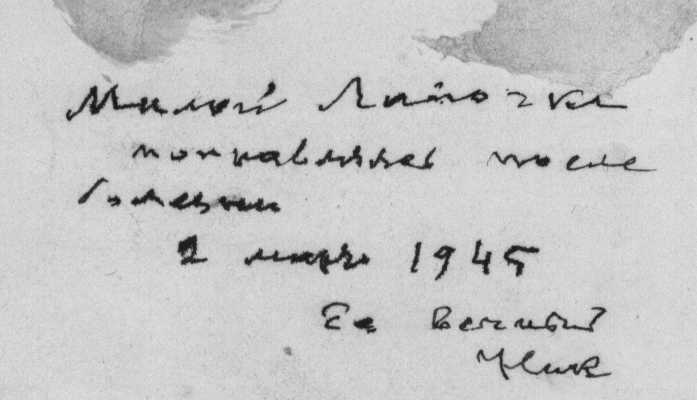 Милой Линочке
поправляйся после
болезни
2 марта 1945
Ее вечный